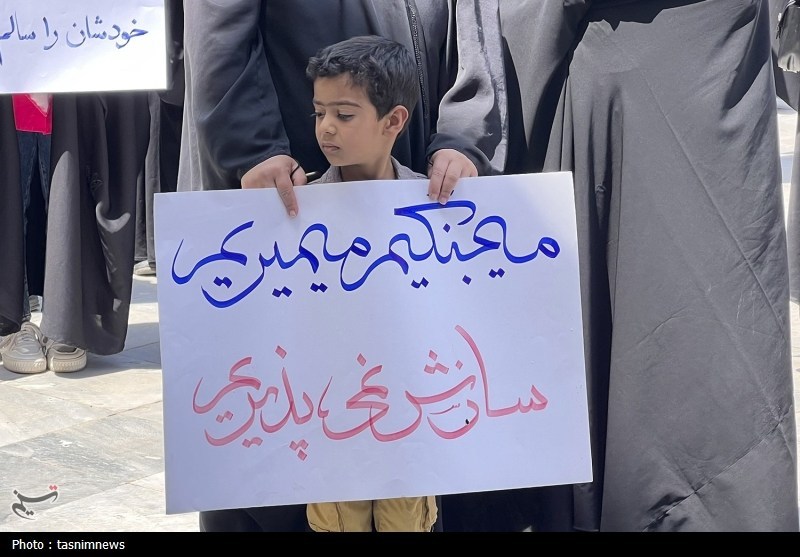 خودشان را سالم
میجنگیم میمیریم
سازش نمی‌پذیریم
تسنیم
Photo : tasnimnews